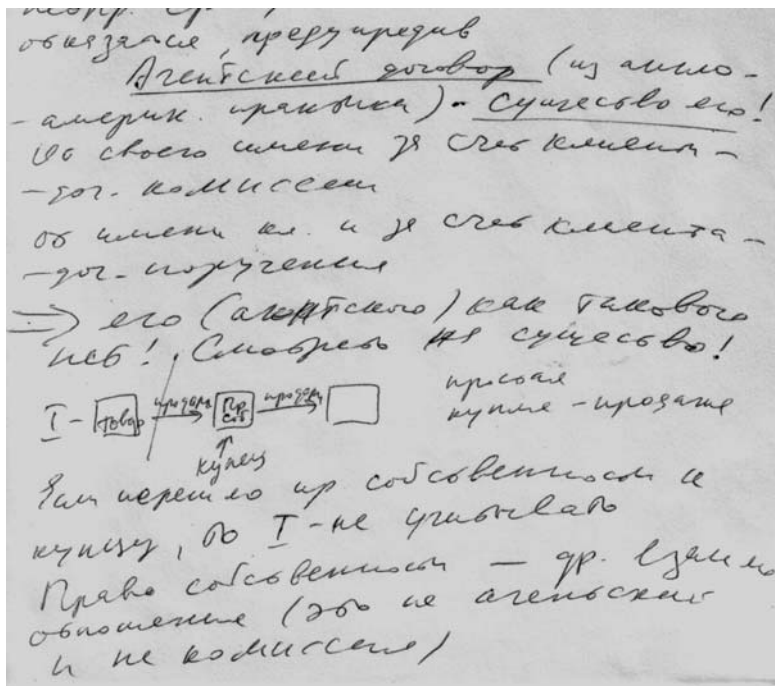 обязался, предупредив
Агентский договор (из англо-
-америк. практики) - существо его!
От своего имени за счет клиента -
- дог. комиссии
от имени кл. и за счет клиента -
- дог. поручения
⇒ его (агентского) как такового
нет! Смотреть на существо!
I - товар продали Пр. соб продали
простая
купля - продажа
купец
Если перешло пр собственности к
купцу, то I - не учитывать
Право собственности — др. взаимо
отношения (это не агентский
и не комиссия)